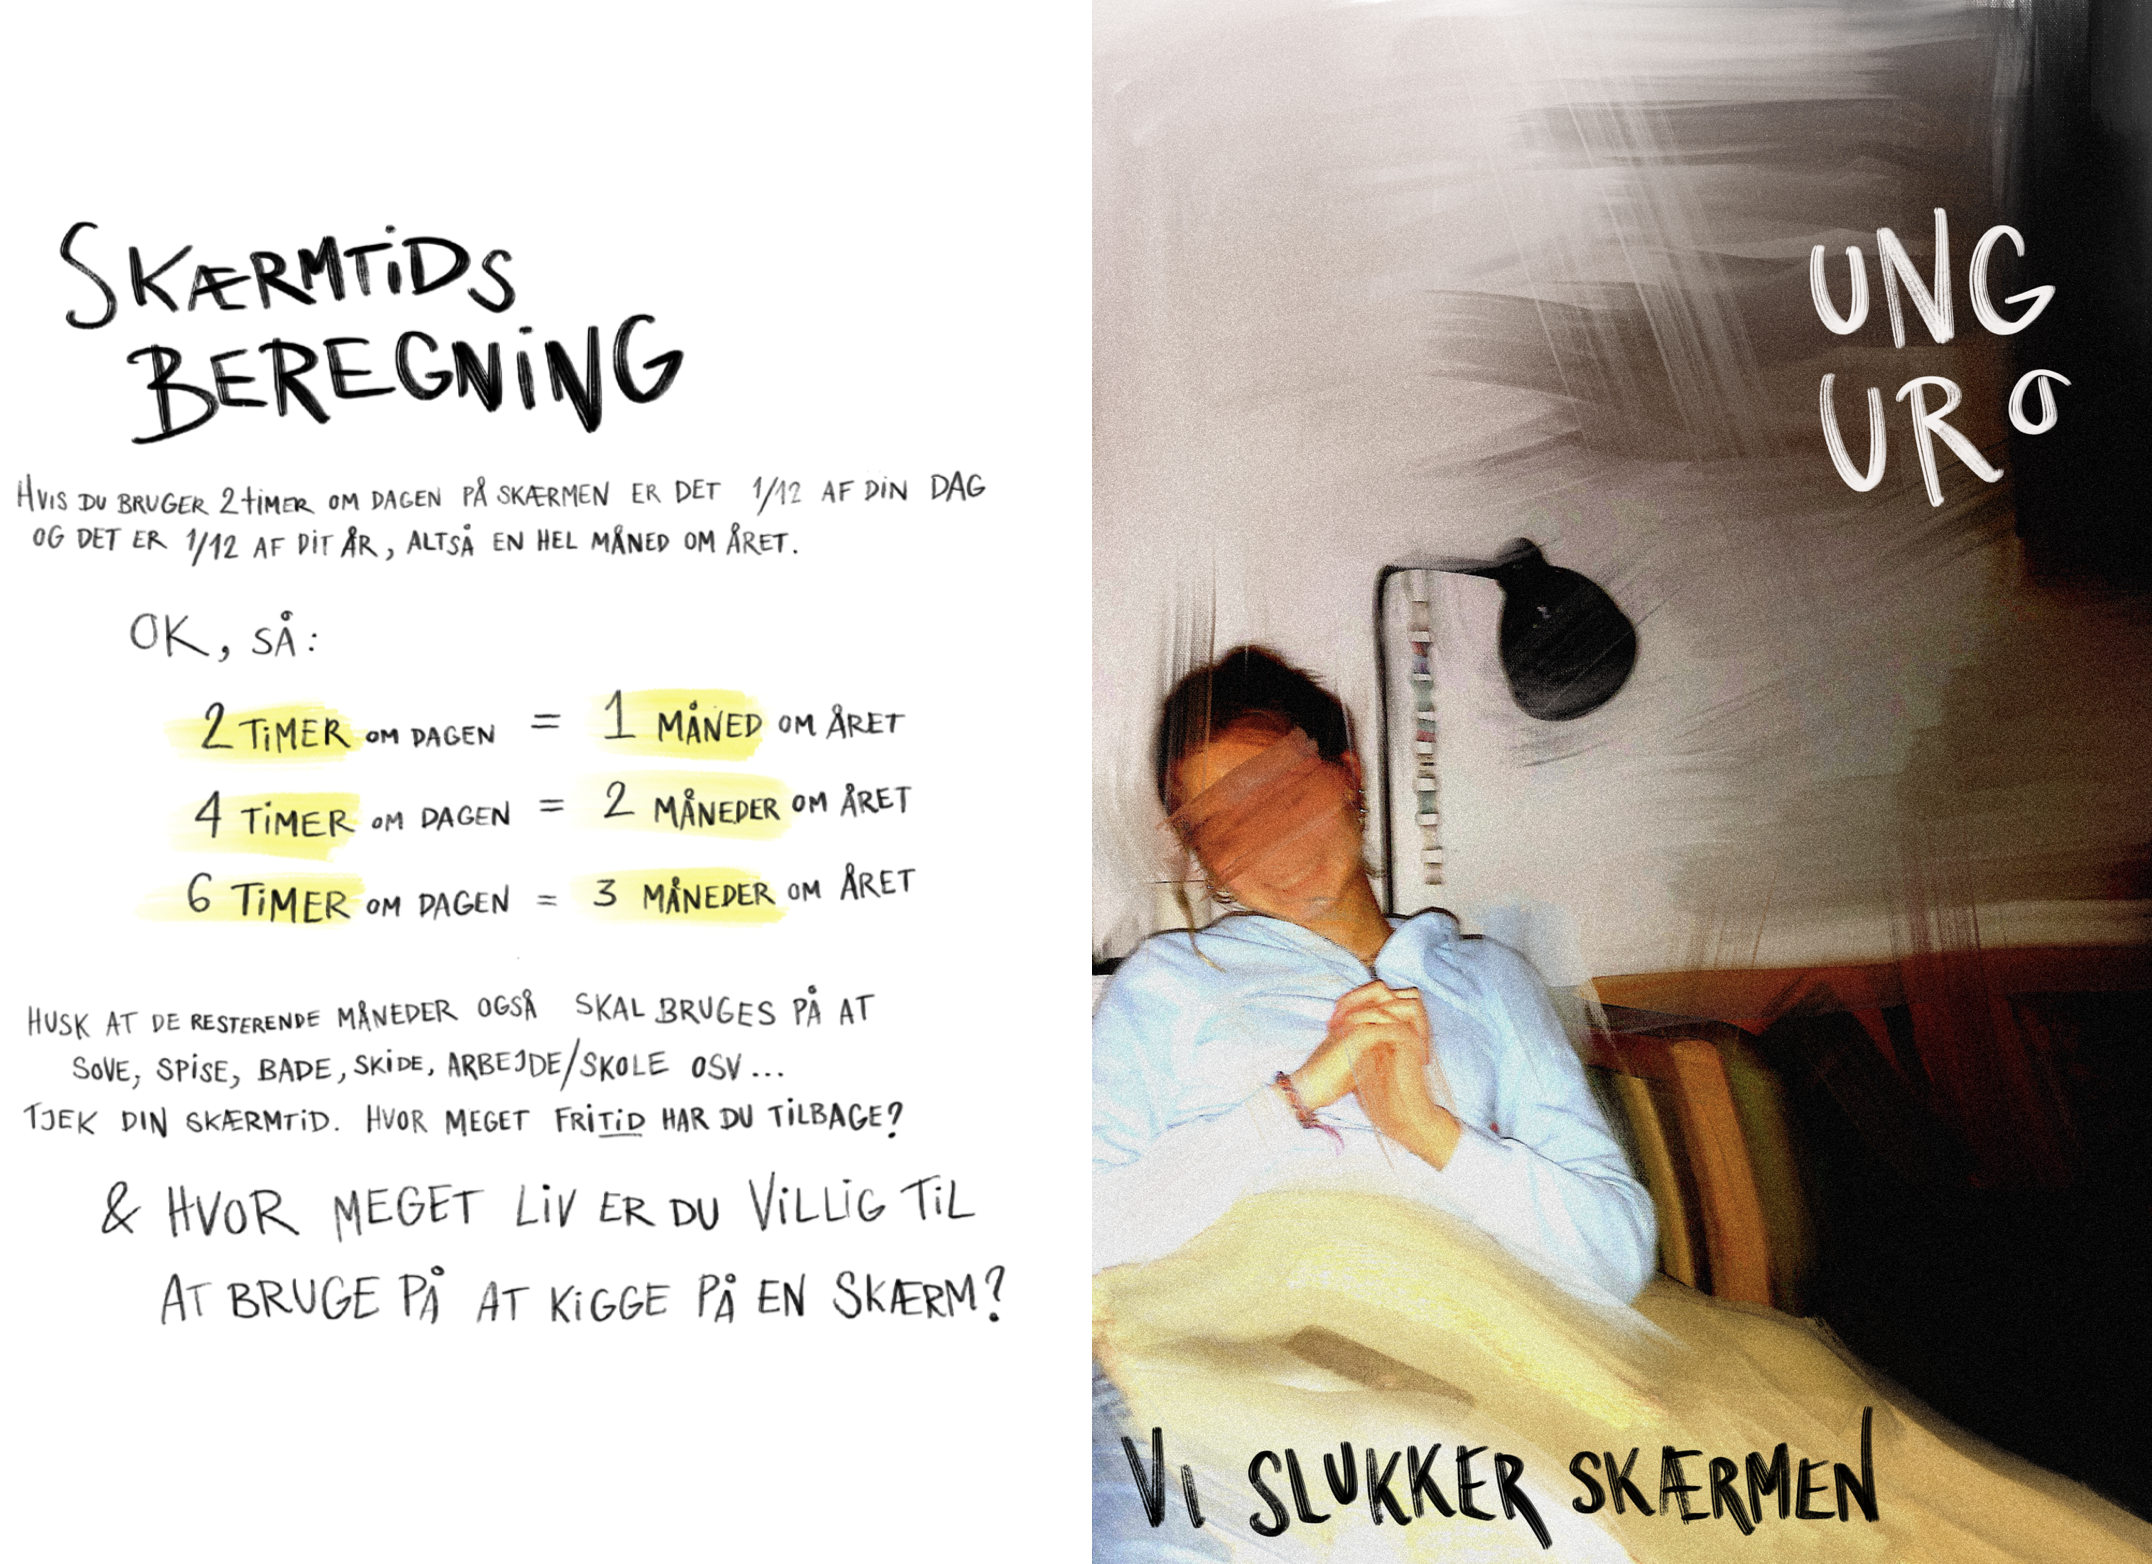 SKÆRMTIDS
BEREGNING
HVIS DU BRUGER 2 TIMER OM DAGEN PÅ SKÆRMEN ER DET 1/12 AF DIN DAG
OG DET ER 1/12 AF DIT ÅR, ALTSÅ EN HEL MÅNED OM ÅRET.
OK, SÅ:
2 TIMER OM DAGEN = 1 MÅNED OM ÅRET
4 TIMER OM DAGEN = 2 MÅNEDER OM ÅRET
6 TIMER OM DAGEN = 3 MÅNEDER OM ÅRET
HUSK AT DE RESTERENDE MÅNEDER OGSÅ SKAL BRUGES PÅ AT
SOVE, SPISE, BADE, SKIDE, ARBEJDE/SKOLE OSV...
TJEK DIN SKÆRMTID. HVOR MEGET FRITID HAR DU TILBAGE?
& HVOR MEGET LIV ER DU VILLIG TIL
AT BRUGE PÅ AT KIGGE PÅ EN SKÆRM?
UNG
URO
VI SLUKKER SKÆRMEN